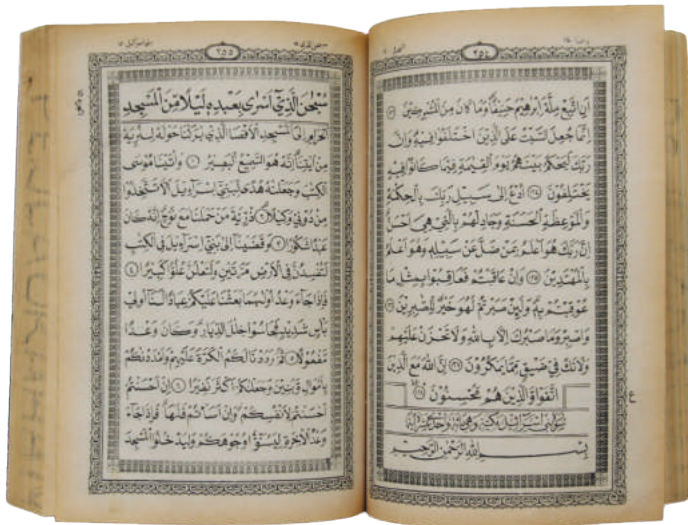 ٢٥٤
اَنِ اتَّبِعْ مِلَّةَ اِبْرٰهِيْمَ حَنِيْفًا وَمَا كَانَ مِنَ الْمُشْرِكِيْنَ
اِنَّمَا جُعِلَ السَّبْتُ عَلَى الَّذِيْنَ اخْتَلَفُوْا فِيْهِ وَاِنَّ
رَبَّكَ لَيَحْكُمُ بَيْنَهُمْ يَوْمَ الْقِيٰمَةِ فِيْمَا كَانُوْا فِيْهِ
يَخْتَلِفُوْنَ اُدْعُ اِلٰى سَبِيْلِ رَبِّكَ بِالْحِكْمَةِ
وَالْمَوْعِظَةِ الْحَسَنَةِ وَجَادِلْهُمْ بِالَّتِيْ هِيَ اَحْسَنُ
اِنَّ رَبَّكَ هُوَ اَعْلَمُ بِمَنْ ضَلَّ عَنْ سَبِيْلِهٖ وَهُوَ اَعْلَمُ
بِالْمُهْتَدِيْنَ وَاِنْ عَاقَبْتُمْ فَعَاقِبُوْا بِمِثْلِ مَا
عُوْقِبْتُمْ بِهٖ وَلَئِنْ صَبَرْتُمْ لَهُوَ خَيْرٌ لِّلصّٰبِرِيْنَ
وَاصْبِرْ وَمَا صَبْرُكَ اِلَّا بِاللّٰهِ وَلَا تَحْزَنْ عَلَيْهِمْ
وَلَا تَكُ فِيْ ضَيْقٍ مِّمَّا يَمْكُرُوْنَ اِنَّ اللّٰهَ مَعَ الَّذِيْنَ
اتَّقَوْا وَّالَّذِيْنَ هُمْ مُّحْسِنُوْنَ
بِسْمِ اللّٰهِ الرَّحْمٰنِ الرَّحِيْمِ
٢٥٥
سُبْحٰنَ الَّذِيْ اَسْرٰى بِعَبْدِهٖ لَيْلًا مِّنَ الْمَسْجِدِ
الْحَرَامِ اِلَى الْمَسْجِدِ الْاَقْصَا الَّذِيْ بٰرَكْنَا حَوْلَهٗ لِنُرِيَهٗ
مِنْ اٰيٰتِنَا اِنَّهٗ هُوَ السَّمِيْعُ الْبَصِيْرُ ١ وَاٰتَيْنَا مُوْسَى
الْكِتٰبَ وَجَعَلْنٰهُ هُدًى لِّبَنِيْ اِسْرَآءِيْلَ اَلَّا تَتَّخِذُوْا
مِنْ دُوْنِيْ وَكِيْلًا ٢ ذُرِّيَّةَ مَنْ حَمَلْنَا مَعَ نُوْحٍ اِنَّهٗ كَانَ
عَبْدًا شَكُوْرًا ٣ وَقَضَيْنَا اِلٰى بَنِيْ اِسْرَآءِيْلَ فِي الْكِتٰبِ
لَتُفْسِدُنَّ فِي الْاَرْضِ مَرَّتَيْنِ وَلَتَعْلُنَّ عُلُوًّا كَبِيْرًا ٤
فَاِذَا جَآءَ وَعْدُ اُوْلٰىهُمَا بَعَثْنَا عَلَيْكُمْ عِبَادًا لَّنَآ اُولِيْ
بَاْسٍ شَدِيْدٍ فَجَاسُوْا خِلٰلَ الدِّيَارِ وَكَانَ وَعْدًا
مَّفْعُوْلًا ٥ ثُمَّ رَدَدْنَا لَكُمُ الْكَرَّةَ عَلَيْهِمْ وَاَمْدَدْنٰكُمْ
بِاَمْوَالٍ وَّبَنِيْنَ وَجَعَلْنٰكُمْ اَكْثَرَ نَفِيْرًا ٦ اِنْ اَحْسَنْتُمْ
اَحْسَنْتُمْ لِاَنْفُسِكُمْ وَاِنْ اَسَاْتُمْ فَلَهَا فَاِذَا جَآءَ
وَعْدُ الْاٰخِرَةِ لِيَسُوْٓءٗا وُجُوْهَكُمْ وَلِيَدْخُلُوا الْمَسْجِدَ